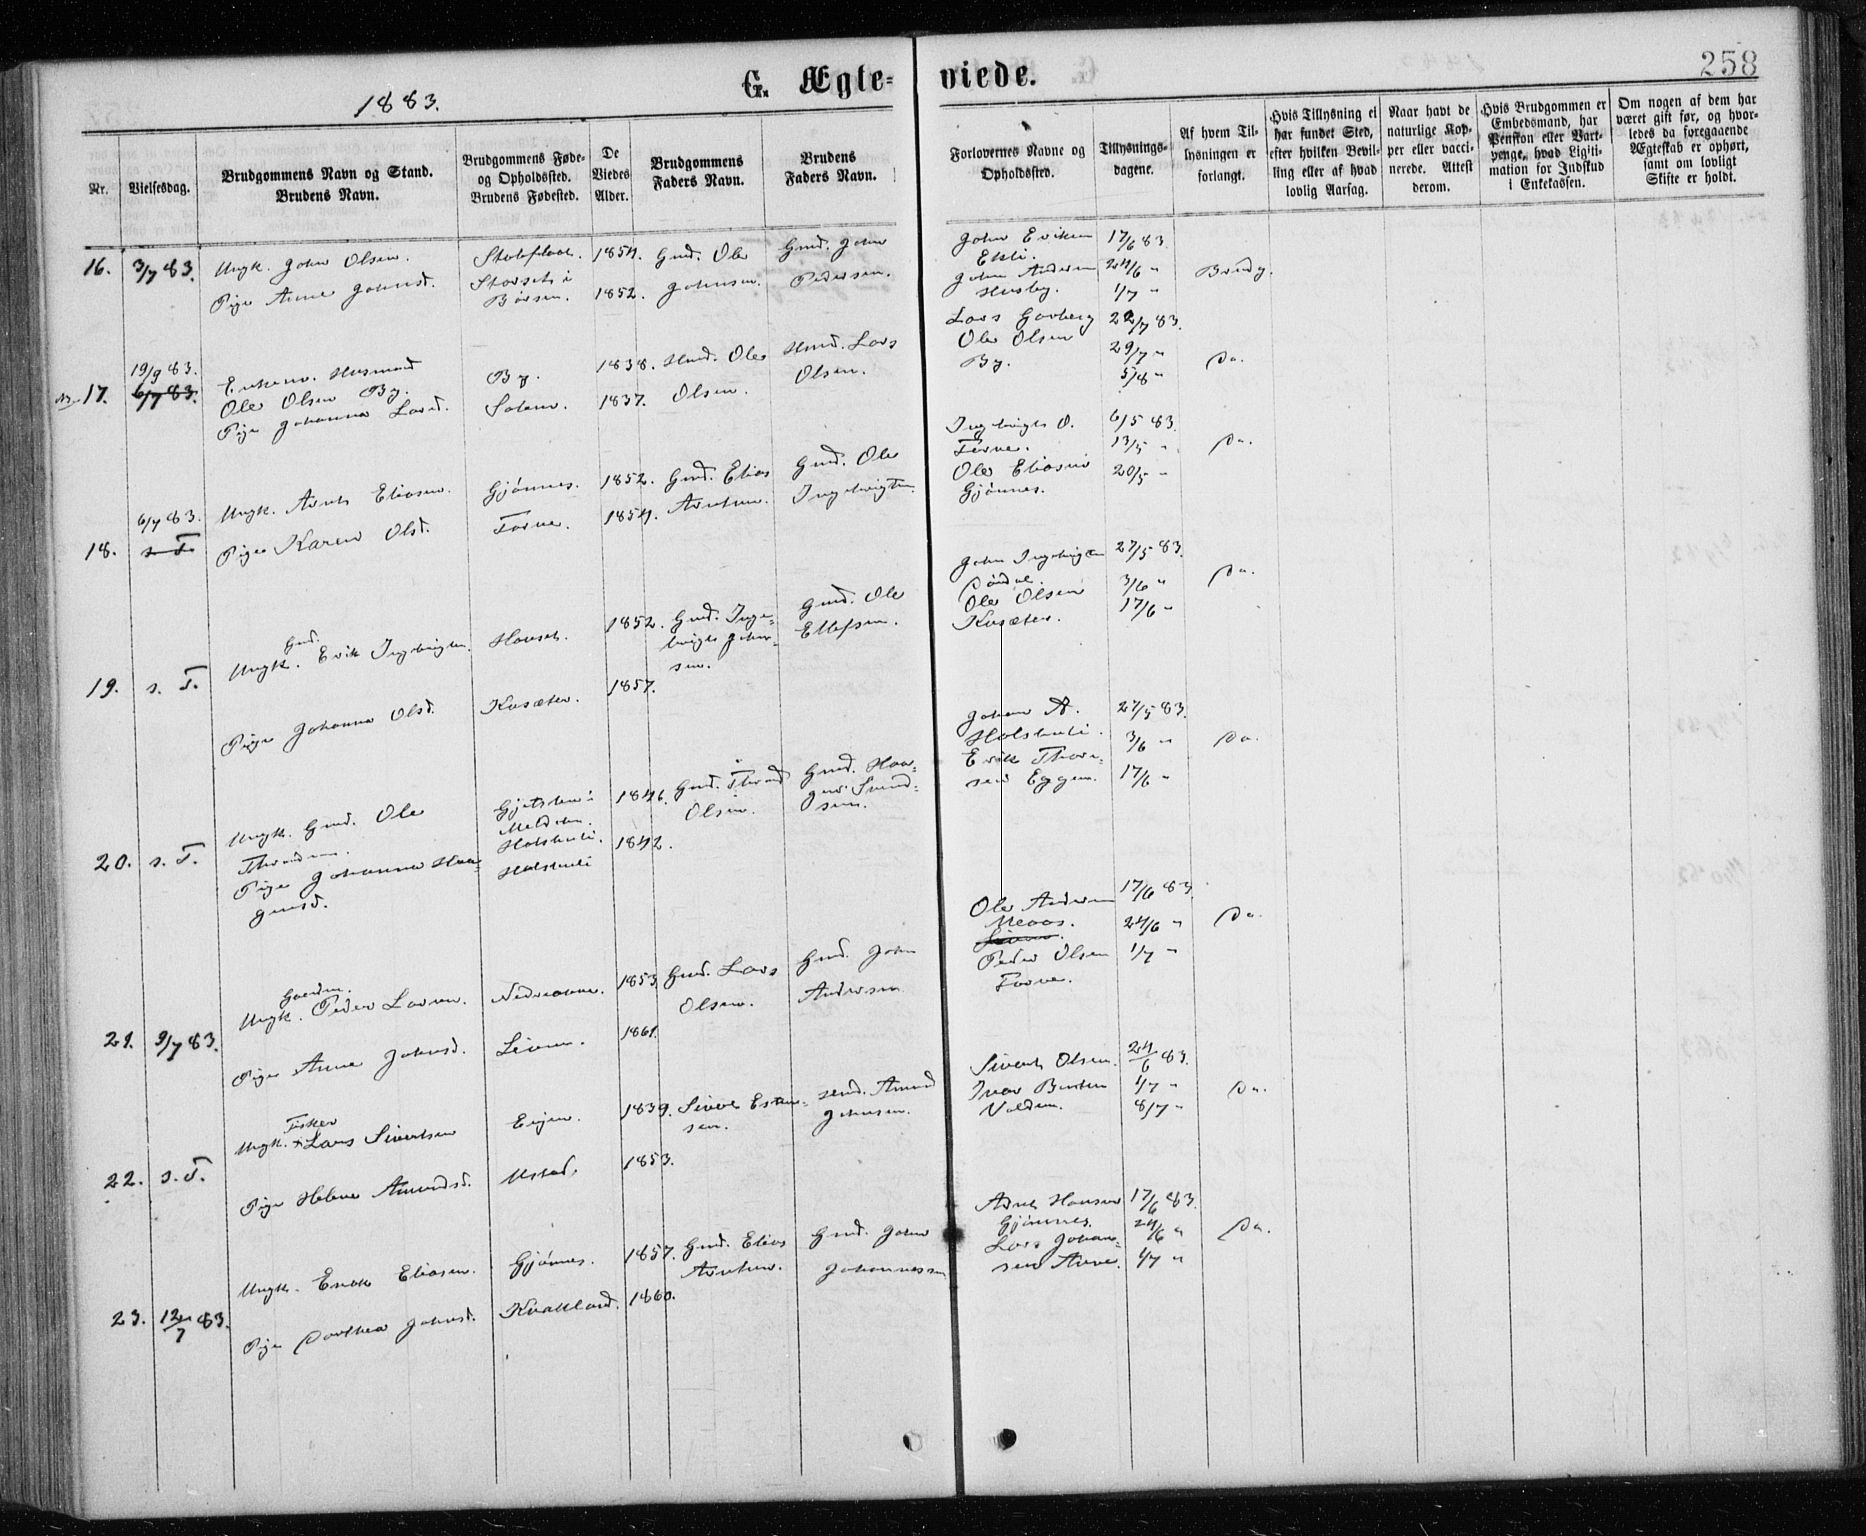 258
1883.
G. Ægte-
viede.
Nr.
Vielsesdag.
Brudgommens Navn og Stand.
Brudens Navn.
Brudgommens Føde-
og Opholdssted.
Brudens Fødested.
De
Viedes
Alder.
Brudgommens
Faders Navn.
Brudens
Faders Navn.
Forlovernes Navne og
Opholdssted.
Tillysnings-
dagene.
Af hvem Til-
lysningen er
forlangt.
Hvis Tillysning ei
har fundet Sted,
efter hvilken Bevil-
ling eller af hvad
lovlig Aarsag.
Naar havt de
naturlige Kop-
per eller vacci-
nerede. Attest
derom.
Hvis Brudgommen er
Embedsmand, har
Pension eller Vart-
penge, hvad Ligiti-
mation for Indskud
i Enkekassen.
Om nogen af dem har
været gift før, og hvor-
ledes da foregaaende
Ægteskab er ophørt,
samt om lovligt
Skifte er holdt.
16. 3/7 83.
Ungk. John Olsen.
Pige Anne Johnsd.
Børsen.
1854.
1852.
Gmd. Ole
Johnsen.
Gmd. John
Pedersen.
John Eriksen
John Andersen
Husby.
17/6 83.
24/6 "
1/7 "
Brudg.
17. 19/9 83.
6/7 83.
Enkem. Husmand
Ole Olsen By.
Pige Johanna Larsd.
By.
Solem.
1838.
1837.
Husd. Ole
Olsen.
Husd. Lars
Olsen.
Lars Havberg
Ole Olsen
By.
22/7 83.
29/7 "
5/8 "
Do.
18. 6/7 83.
s. T.
Ungk. Arnt Eliasen.
Pige Karen Olsd.
Gjønnes.
Forve.
1852.
1854.
Gmd. Elias
Arntsen.
Gmd. Ole
Ingebrigtsen.
Ingebrigt O.
Forve.
Ole Eliasen
Gjønnes.
6/5 83.
13/5 "
20/5 "
Do.
19. s. T.
Gmd.
Ungk. Erik Ingebrigtsen.
Pige Johanna Olsd.
Hovset.
Kusæter.
1852.
1857.
Gmd. Inge-
brigt John-
sen.
Gmd. Ole
Ellefsen.
John Ingebrigtsen
Ole Olsen
Kusæter.
27/5 83.
3/6 "
17/6 "
Do.
20. s. T.
Ungk. Gmd. Ole
Throndsen.
Pige Johanna Haa-
gensd.
Meldalen.
Holstuli.
Holstuli
1846.
1842.
Gmd. Thrond
Olsen.
Gmd. Haa-
gen Svend-
sen.
Johan A.
Holstuli.
Erik Thore-
sen Eggen.
27/5 83.
3/6 "
17/6 "
Do.
21. 9/7 83.
Gaardm.
Ungk. Peder Larsen.
Pige Anne Johnsd.
1853.
1861.
Gmd. Lars
Olsen.
Gmd. John
Andersen
Ole Andersen
Meaas.
Peder Olsen
Forve.
17/6 83.
24/6 "
1/7 "
Do.
22. s. T.
Fisker
Ungk. + Lars Sivertsen
Pige Helene Amundsd.
Ustad.
1839.
1853.
Sivert Esten-
sen.
Amund
Johnsen.
Sivert Olsen.
Ivar Bentsen
Volden.
24/6 83.
1/7 "
8/7 "
Do.
23. 12/7 83.
Ungk. Erik Eliasen.
Pige Dorthea Johnsd.
Gjønnes.
Kvakland.
1857.
1860.
Gmd. Elias
Arntsen.
Gmd. John
Johannessen
Arnt Hansen
Gjønnes.
Lars Johan-
sen
17/6 83.
24/6 "
1/7 "
Do.